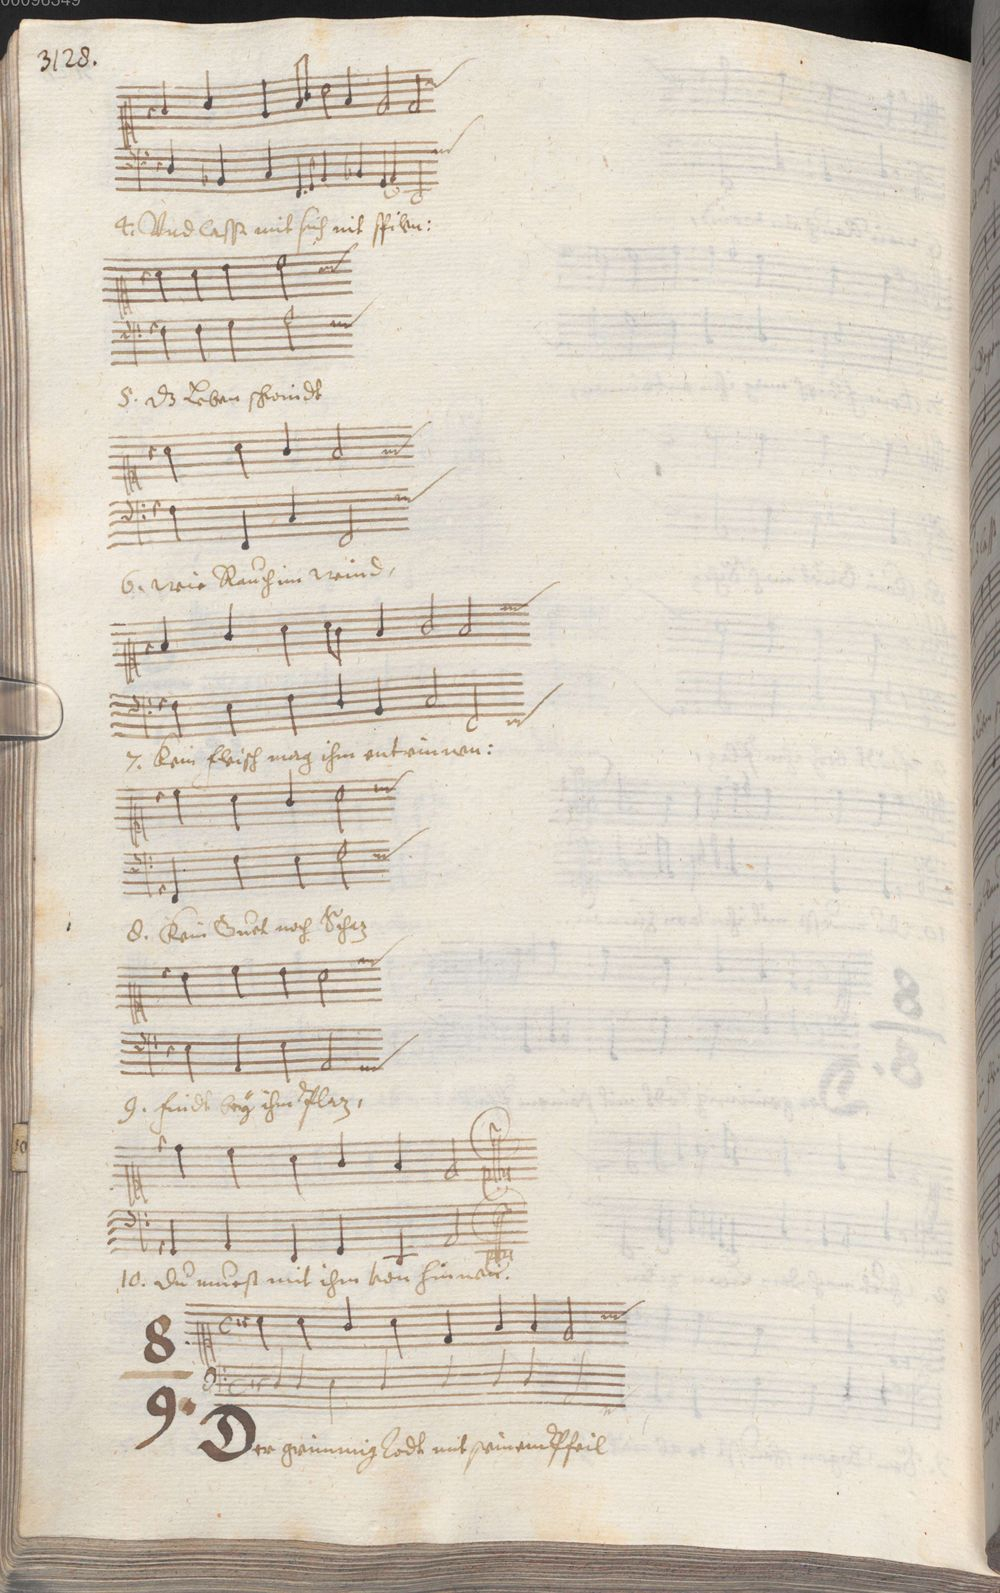 00096349
3128.
4. Und lasse mit sich nit spilen:
5. dz Leben schwindt
6. wie Rauch im wind,
7. Kein fleisch mag ihm entrinnen:
8. Kein Guet noch Schaz
9. findt bey ihm Plaz,
10. du muest mit ihm von hinnen.
8
9.
Der grimmig Todt mit seinem Pfeil